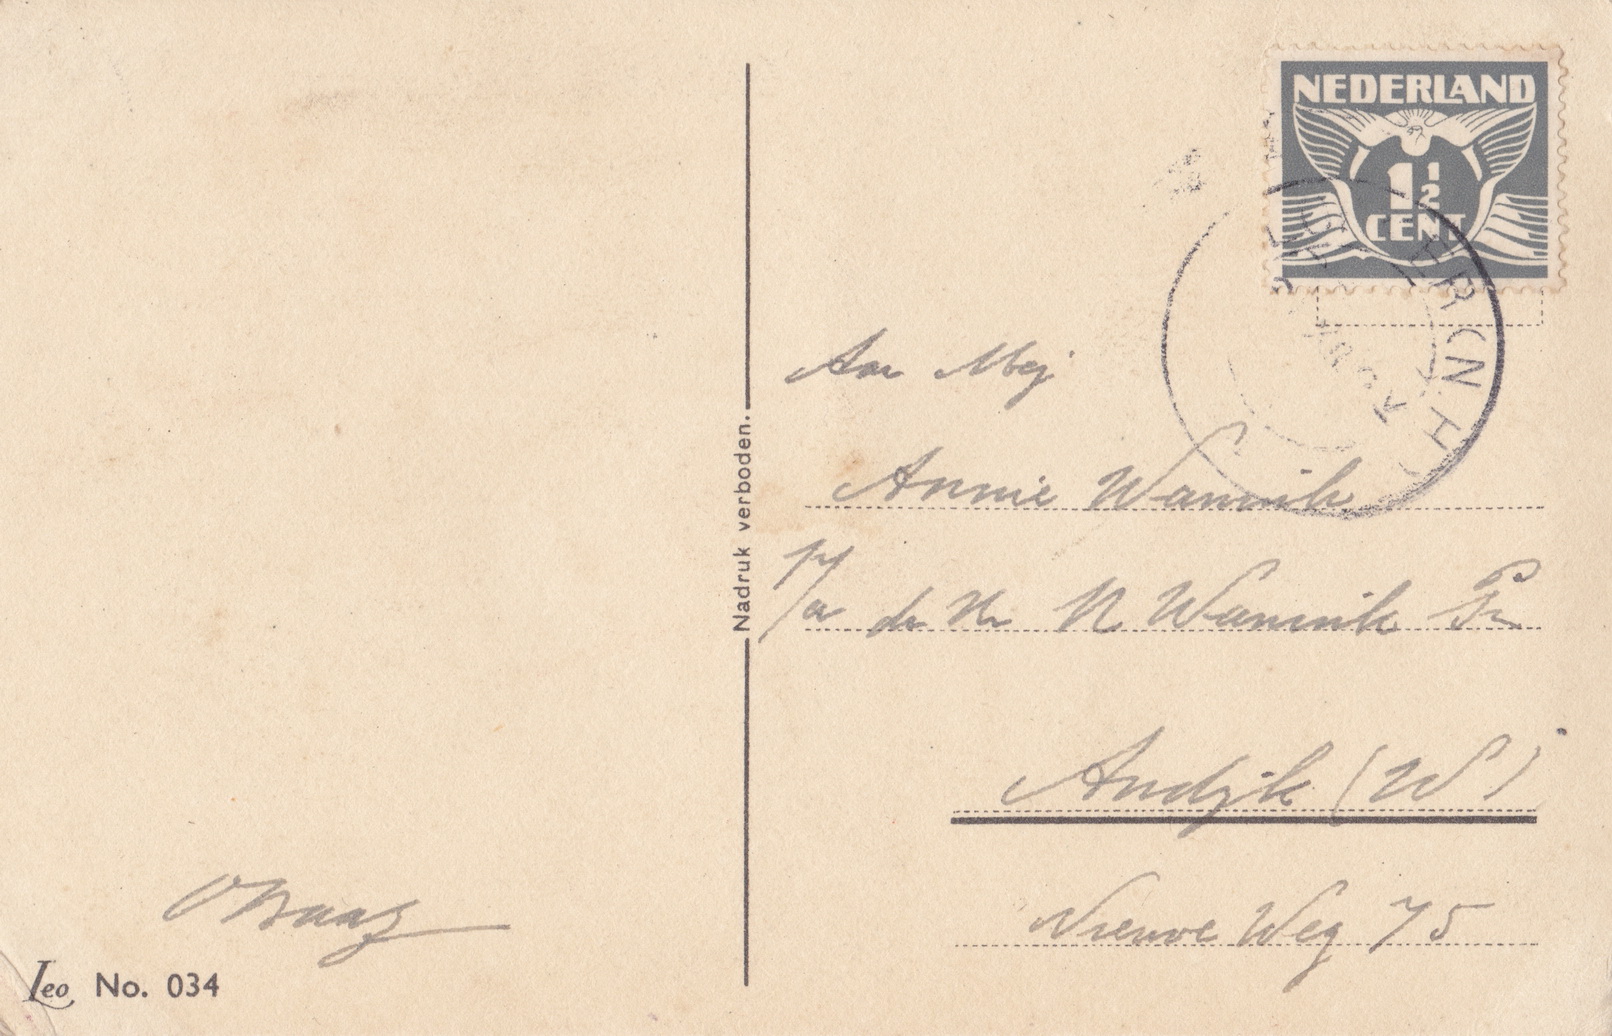 NEDERLAND
1 1/2
CENT
Aan Mej
Annie Wannik
p/a de Hr N Wannik Pz
Andijk (W)
Nieuwe Weg 75
Nadruk verboden.
Leo No. 034